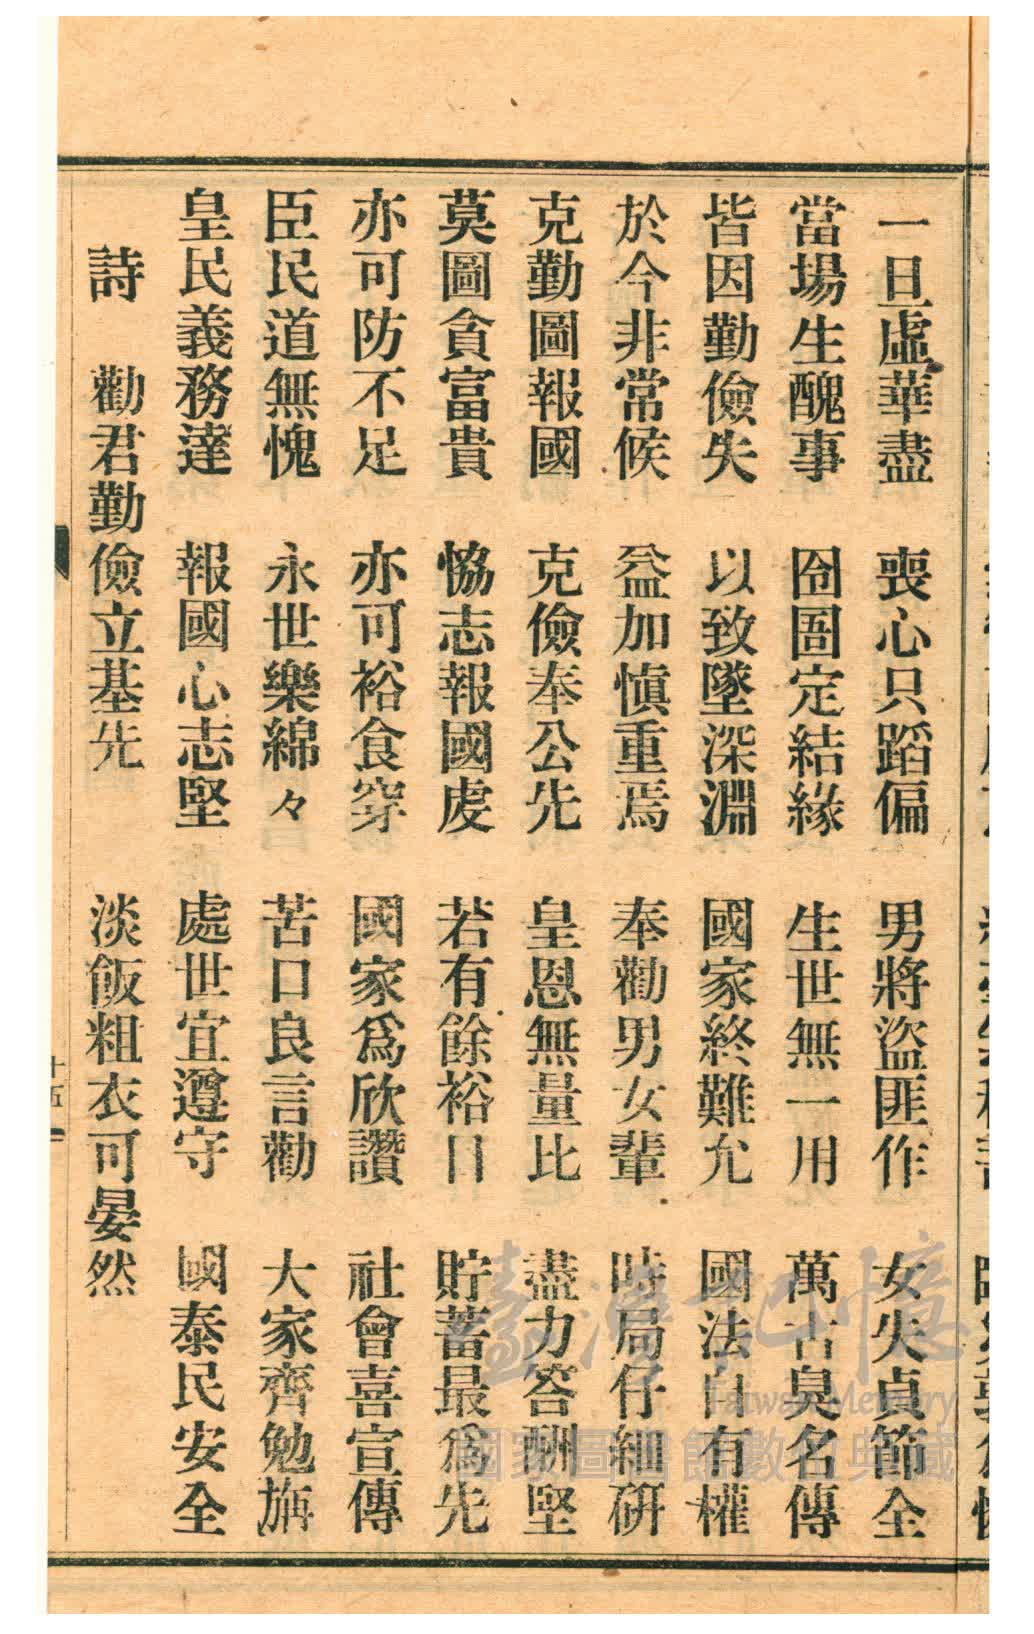 一旦虛華盡　喪心只蹈偏　男將盜匪作　女失貞節全
當場生醜事　囹圄定結緣　生世無一用　萬古臭名傳
皆因勤儉失　以致墜深淵　國家終難允　國法自有權
於今非常候　益加慎重焉　奉勸男女輩　時局仔細研
克勤圖報國　克儉奉公先　皇恩無量比　盡力答酬堅
莫圖貪富貴　恊志報國虔　若有餘裕日　貯蓄最爲先
亦可防不足　亦可裕食穿　國家爲欣讚　社會喜宣傳
臣民道無愧　永世樂綿々　苦口良言勸　大家齊勉旃
皇民義務達　報國心志堅　處世宜遵守　國泰民安全
詩　勸君勤儉立基先　淡飯粗衣可晏然
十五
臺灣記憶
Taiwan Memory
國家圖書館數位典藏